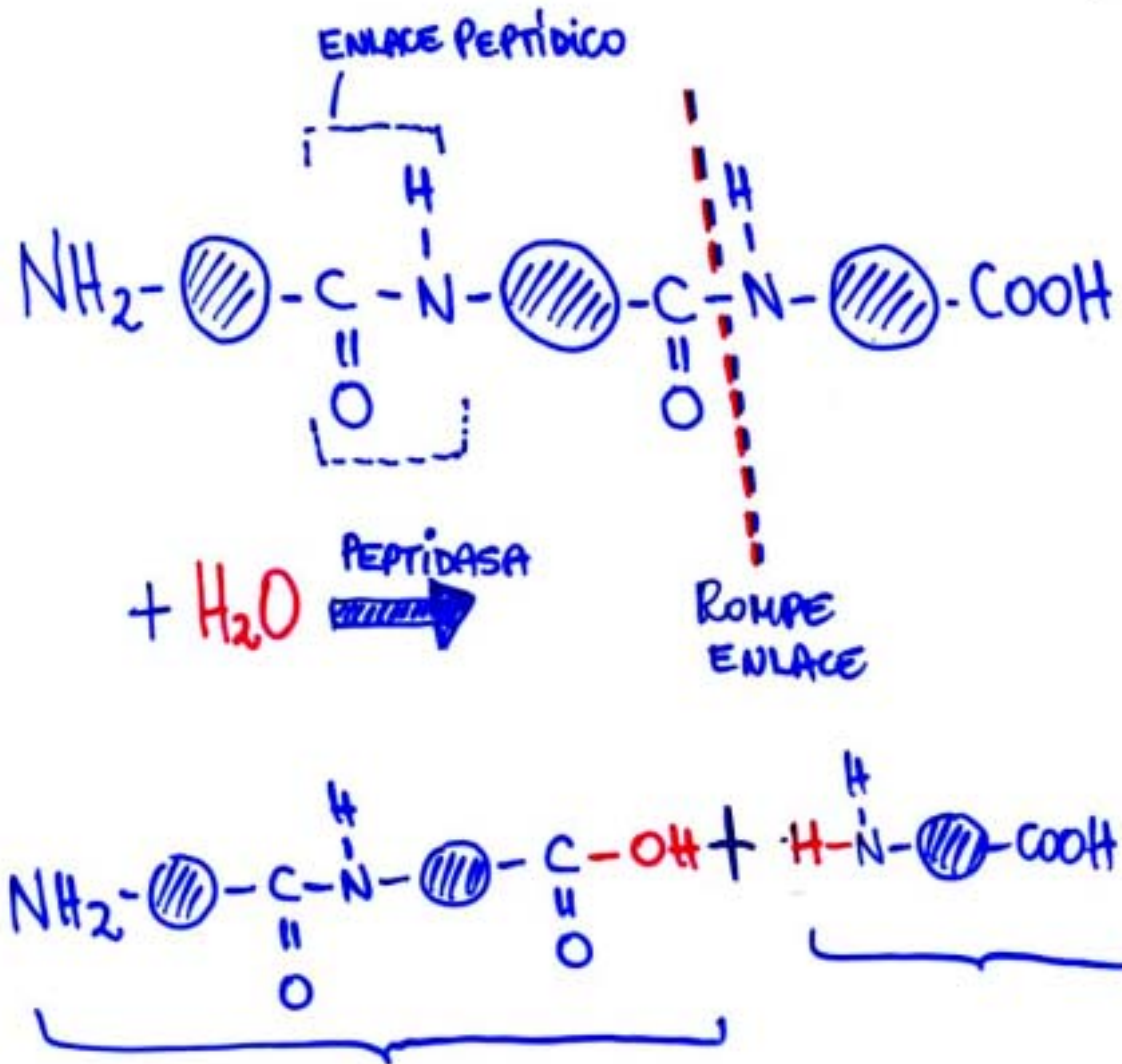 ENLACE PEPTÍDICO
H H
NH₂- -C-N- -C-N- -COOH
O O
+ H₂O PEPTIDASA
ROMPE
ENLACE
H H
NH₂- -C-N- -C-OH + H-N- -COOH
O O